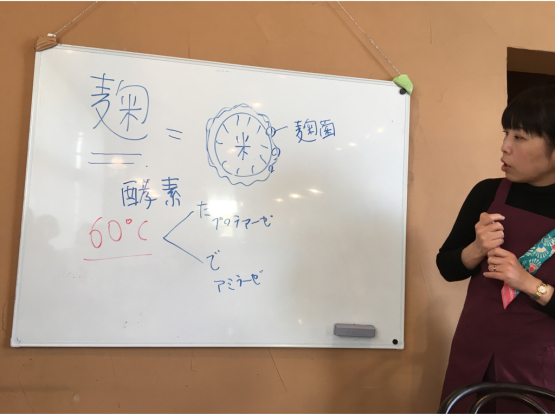 麹 = 米 麹菌
酵素
60℃
た
プロテアーゼ
で
アミラーゼ